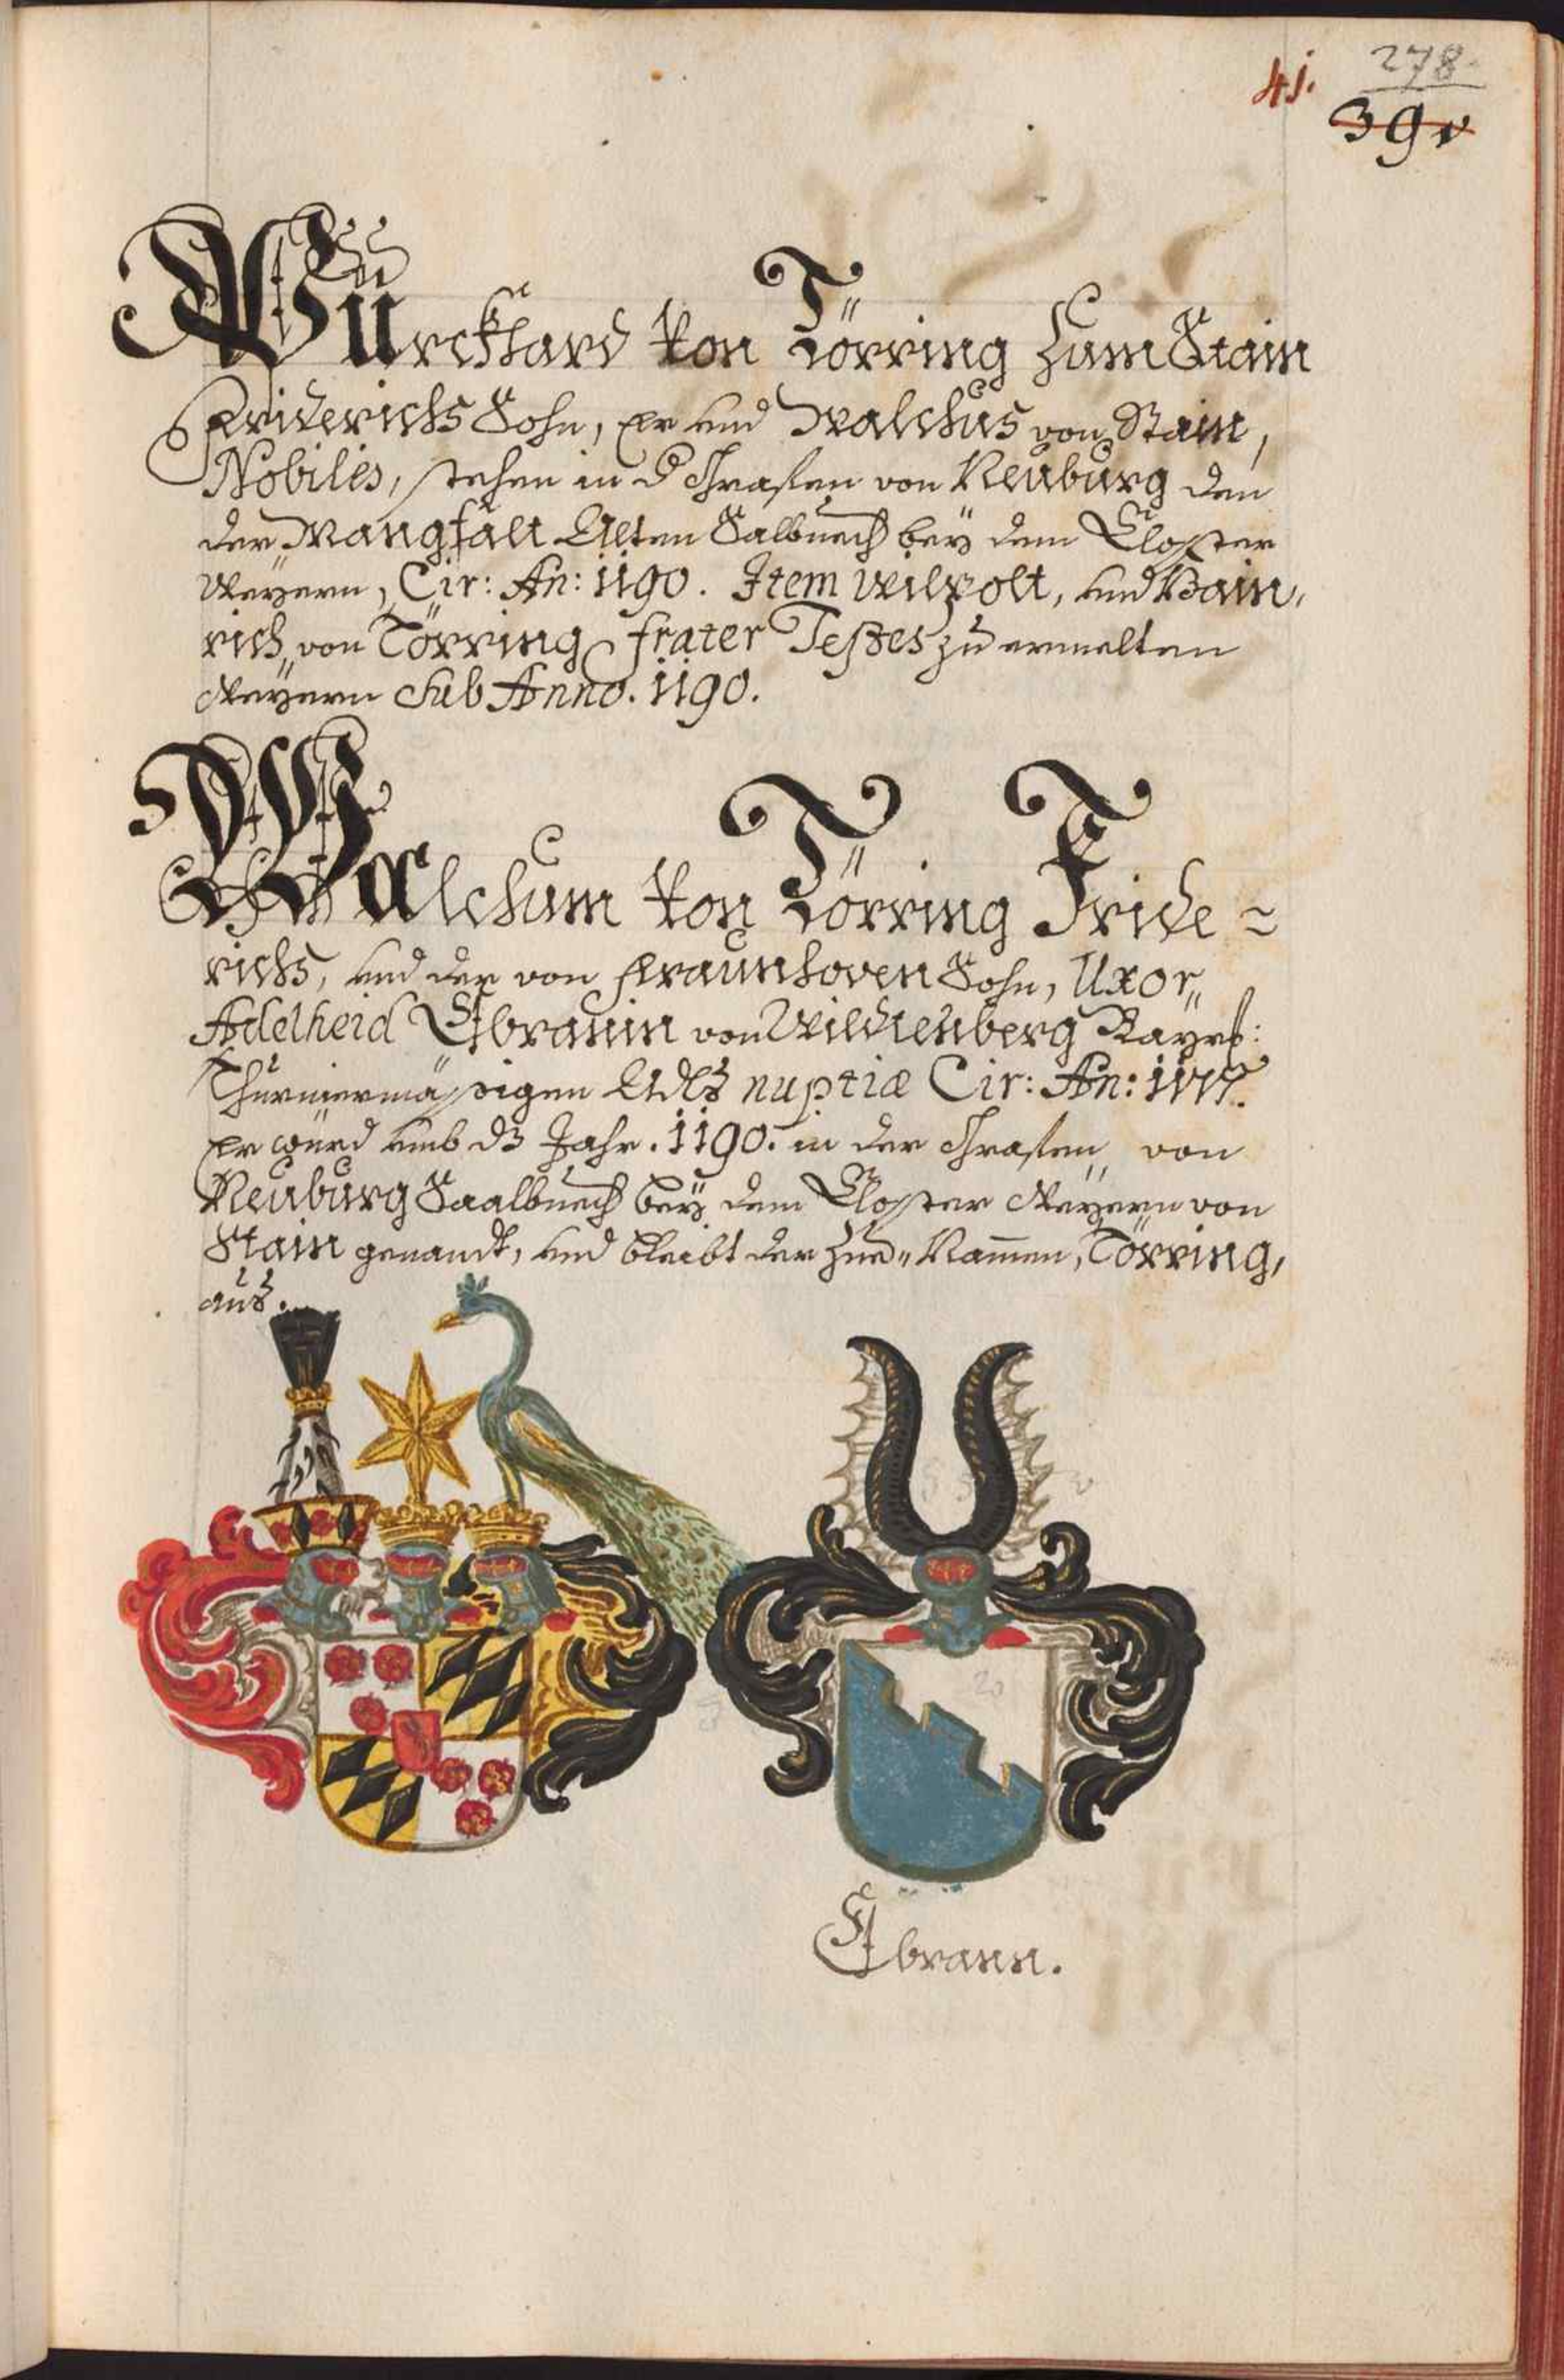 41.
278
39v
Würckhard von Törring zum Stain
Friderichs Sohn, Er und Walchus von Stain,
Nobiles, stehen in d Graffen von Neuburg den
der Mangfalt Alten Salbuech bey dem Closter
Weyern, Cir: An: 1190. Item Wilpolt, und Hain,
rich, von Törring frater Testes zu ermelten
Weyern sub Anno. 1190.
Walchum von Törring Fride =
richs, und der von Fraunhoven Sohn, Uxor,,
Adelheid Ebranin von Wildenberg Bayrs:
Thurniermässigen Adls nuptiæ Cir: An: 1177.
Er würd umb ds Jahr. 1190. in der Graffen von
Neuburg Saalbuech bey dem Closter Weyern von
Stain genandt, und bleibt der Zue,, Namen, Törring,
aus.
Ebrann.